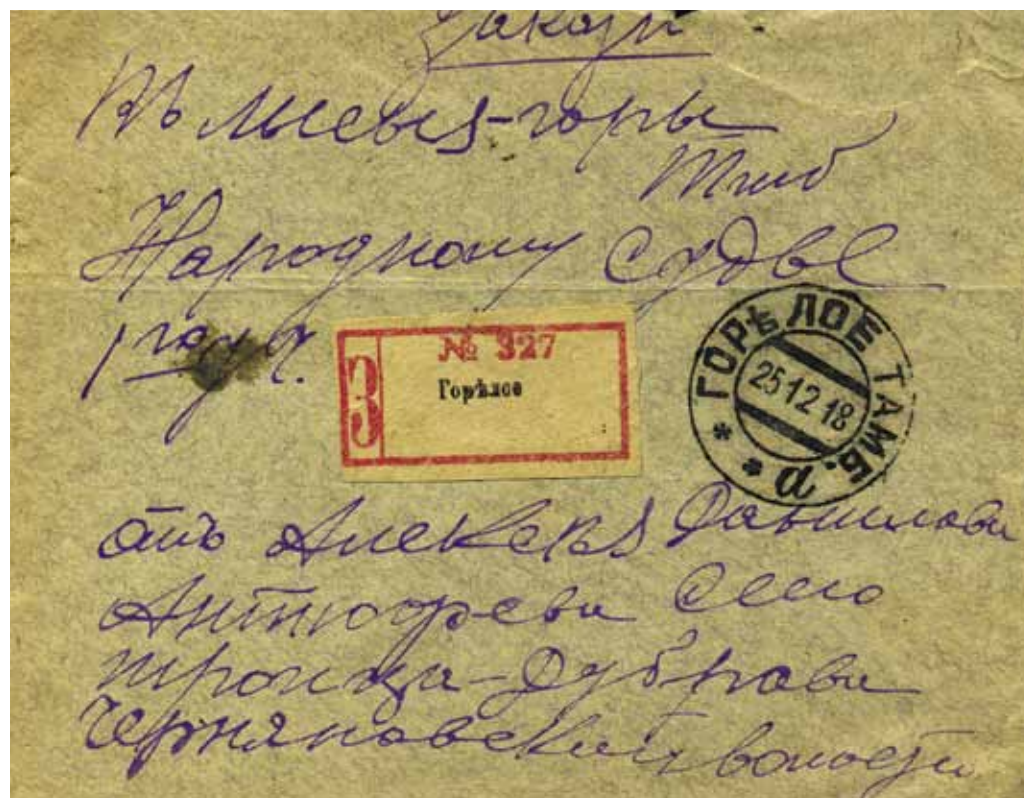 Заказн
Въ лысыя-горы
Тмб
Народному Судье
1 год уч.
№ 327
З
Горѣлое
ГОРѢЛОЕ ТАМБ.
25 12 18
* * а
отъ Алексея Данилова
Антюфеева Село
троица-Дубрава
Черняновской волости